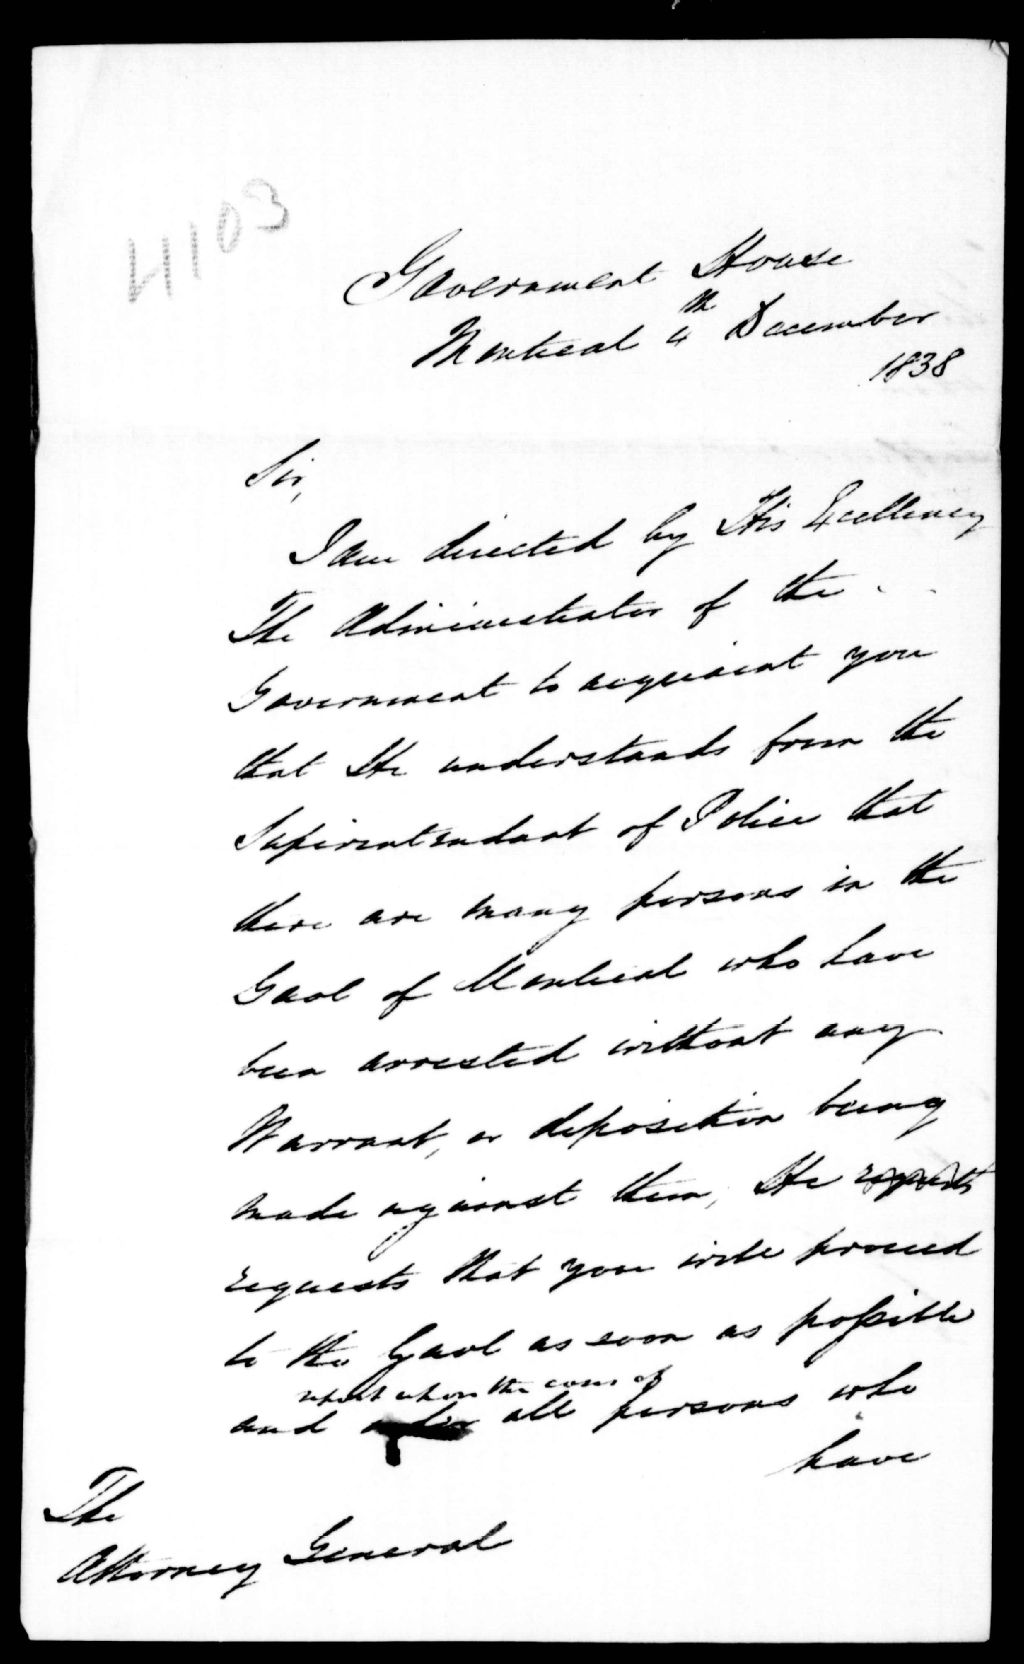 4103
Government House
Montreal 4th December
1838
Sir,
I am directed by His Excellency
The Administrator of the
Government to acquaint you
that He understands from the
Superintendant of Police that
there are many persons in the
Gaol of Montreal who have
been arrested without any
Warrant, or deposition being
made against them, He
requests that you will proceed
to the Gaol as soon as possible
report upon the cases of
and all persons who
have
The
Attorney General